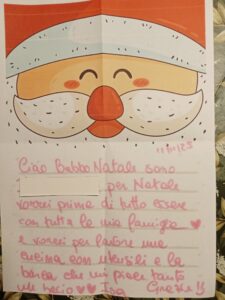 Ciao Babbo Natale sono
per Natale
vorrei prima di tutto essere
con tutta la mia famiglia
e vorrei per favore una
cucina con utensili e la
che mi piace tanto
un bacio Isa Grazie!!